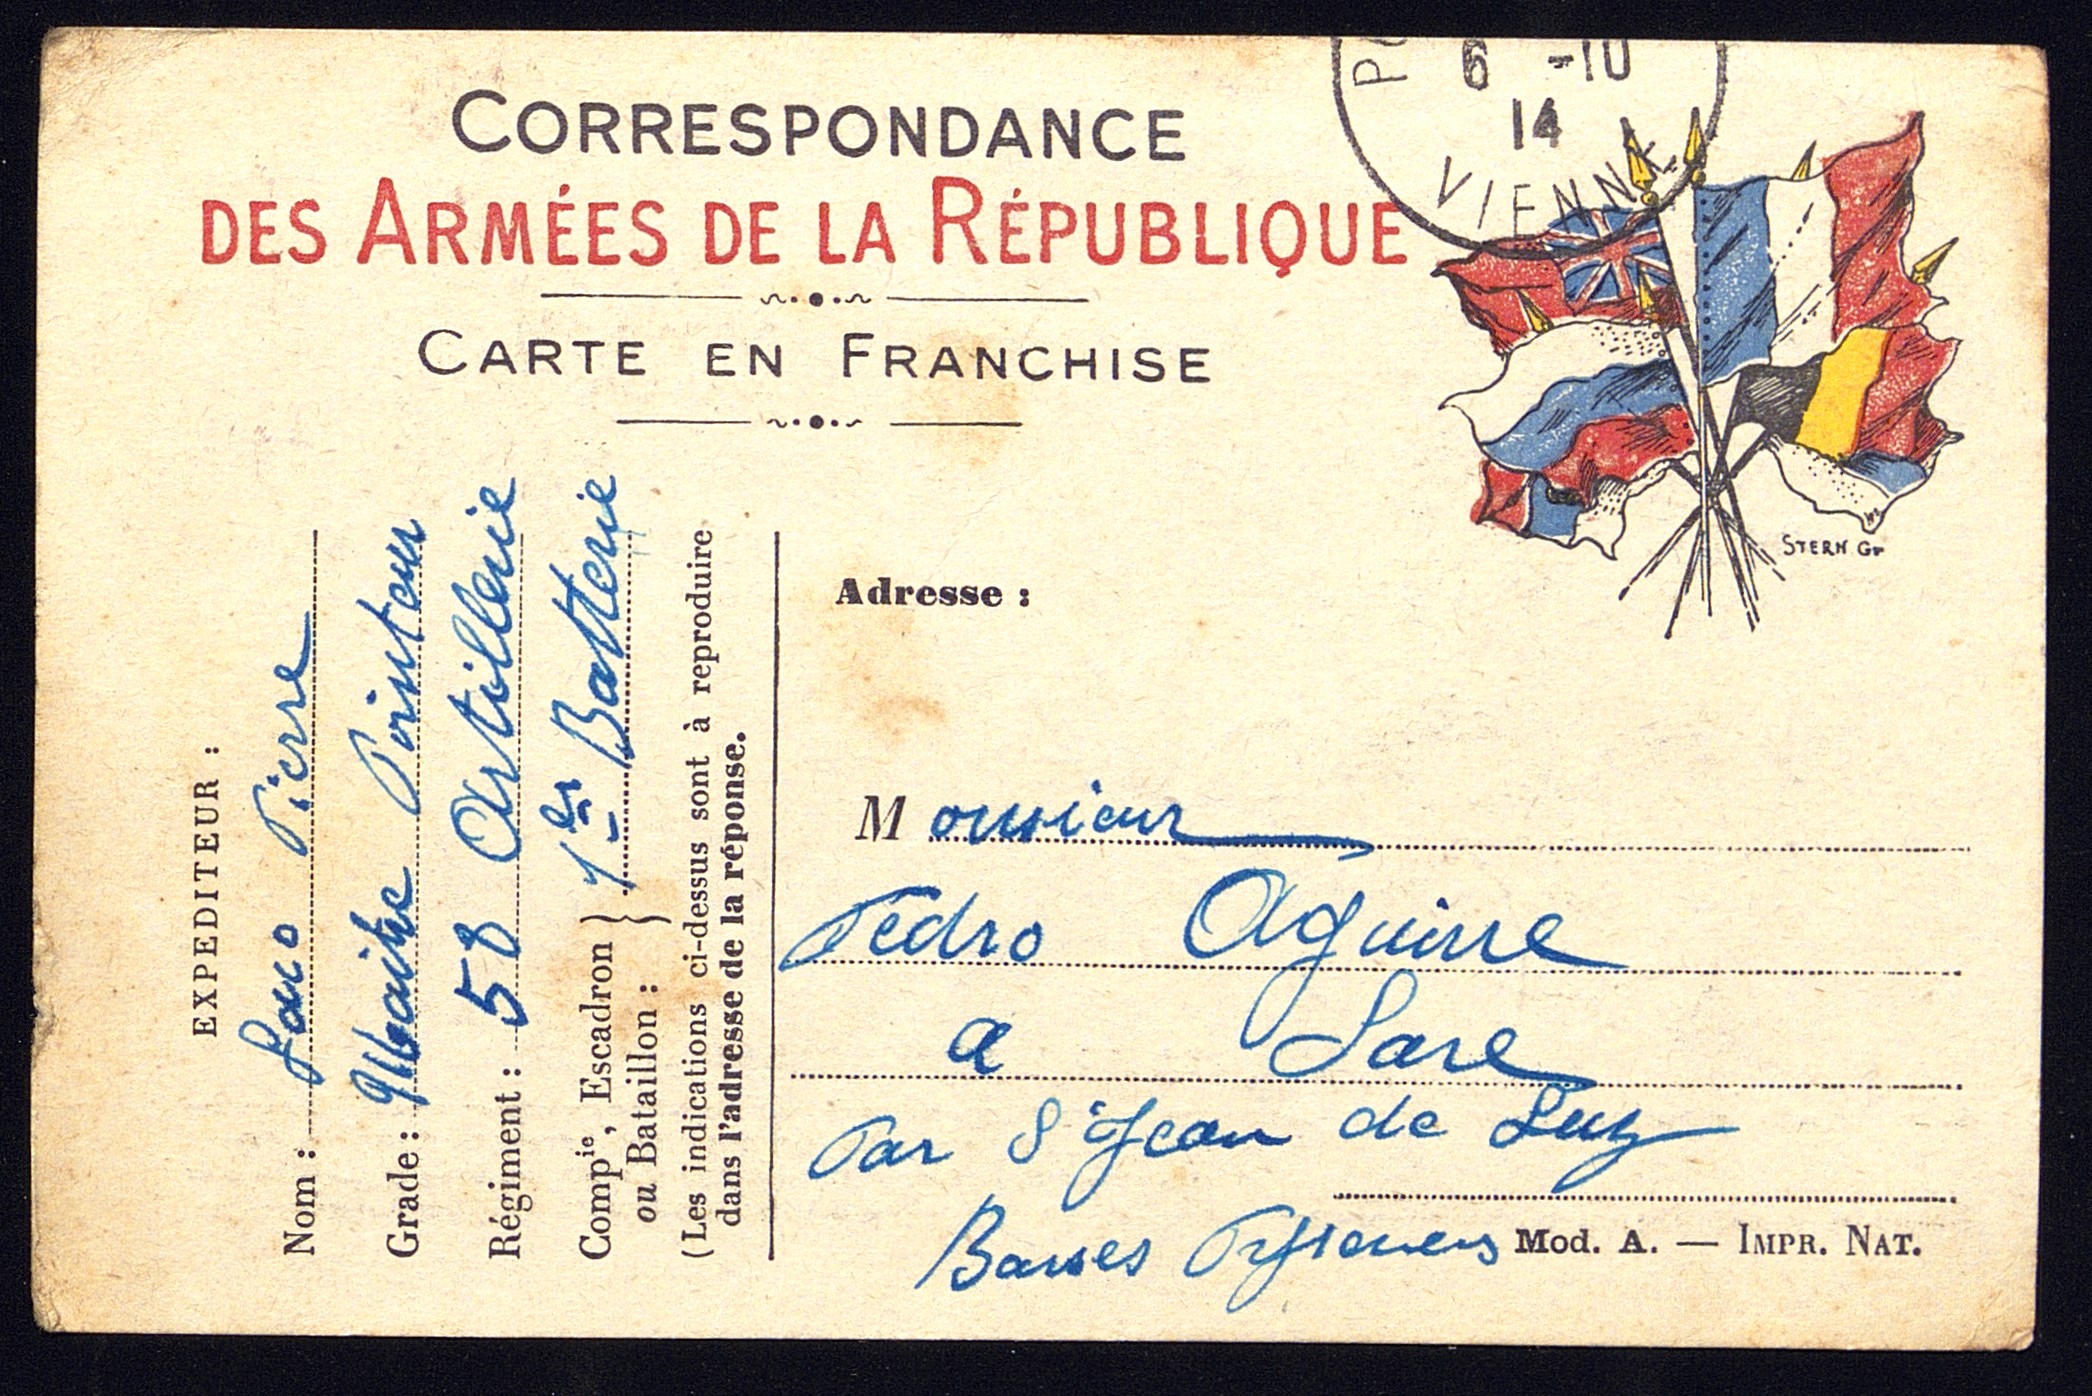 CORRESPONDANCE
DES ARMÉES DE LA RÉPUBLIQUE
CARTE EN FRANCHISE
6 -10
14
VIENNE
STERN Gr
EXPEDITEUR :
Nom : Pierre
Grade : Maitre Pointeur
Régiment : 58 Artillerie
Compie, Escadron
ou Bataillon : } 1er Batterie
(Les indications ci-dessus sont à reproduire
dans l'adresse de la réponse.
Adresse :
Monsieur
Pedro Aguirre
a Sare
Par St Jean de Luz
Basses Pyreneens
Mod. A. — IMPR. NAT.